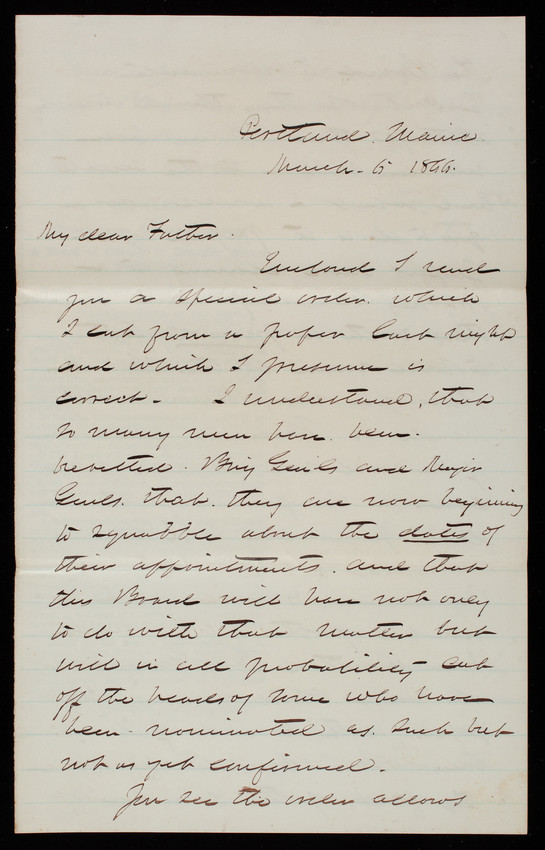 Portland. Maine.
March. 6 1866.
My dear Father.
Enclosed I send
you a special order. which
I cut from a paper last night
and which I presume is
correct. I understand, that
so many men have been.
brevetted. Brig Genls and Major
Genls. that. they are now beginning
to squabble about the dates of
their appointments. and that
this Board will have not only
to do with that matter but
will in all probability cut
off the heads of some who have
been. nominated as. such but
not as yet confirmed.
You see the order allows